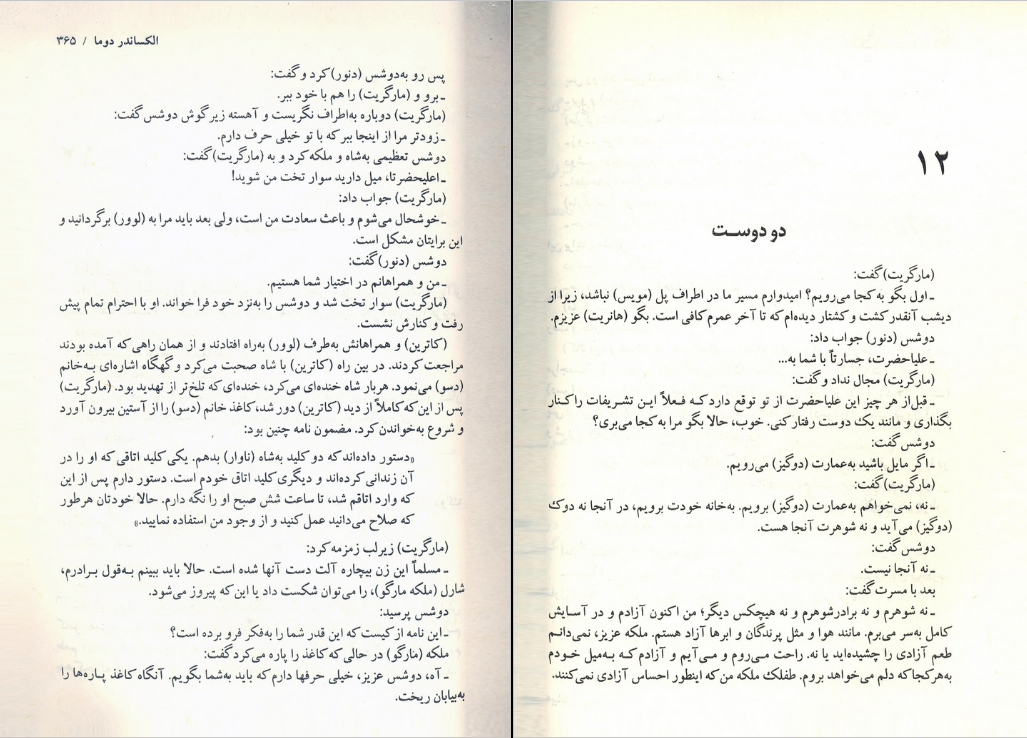 الکساندر دوما / ۳۶۵
پس رو به‌دوشس (دنور) کرد و گفت:
ـ برو و (مارگریت) را هم با خود ببر.
(مارگریت) دوباره به‌اطراف نگریست و آهسته زیر گوش دوشس گفت:
ـ زودتر مرا از اینجا ببر که با تو خیلی حرف دارم.
دوشس تعظیمی به‌شاه و ملکه کرد و به (مارگریت) گفت:
ـ اعلیحضرتا، میل دارید سوار تخت من شوید!
(مارگریت) جواب داد:
ـ خوشحال می‌شوم و باعث سعادت من است، ولی بعد باید مرا به (لوور) برگردانید و
این برایتان مشکل است.
دوشس (دنور) گفت:
ـ من و همراهانم در اختیار شما هستیم.
(مارگریت) سوار تخت شد و دوشس را به‌نزد خود فرا خواند. او با احترام تمام پیش
رفت و کنارش نشست.
(کاترین) و همراهانش به‌طرف (لوور) به‌راه افتادند و از همان راهی که آمده بودند
مراجعت کردند. در بین راه (کاترین) با شاه صحبت می‌کرد و گهگاه اشاره‌ای به‌خانم
(دسو) می‌نمود. هربار شاه خنده‌ای می‌کرد، خنده‌ای که تلخ‌تر از تهدید بود. (مارگریت)
پس از این‌که کاملاً از دید (کاترین) دور شد، کاغذ خانم (دسو) را از آستین بیرون آورد
و شروع به‌خواندن کرد. مضمون نامه چنین بود:
«دستور داده‌اند که دو کلید به‌شاه (ناوار) بدهم. یکی کلید اتاقی که او را در
آن زندانی کرده‌اند و دیگری کلید اتاق خودم است. دستور دارم پس از این
که وارد اتاقم شد، تا ساعت شش صبح او را نگه دارم. حالا خودتان هرطور
که صلاح می‌دانید عمل کنید و از وجود من استفاده نمایید.»
(مارگریت) زیرلب زمزمه کرد:
ـ مسلماً این زن بیچاره آلت دست آنها شده است. حالا باید ببینم به‌قول برادرم،
شارل (ملکه مارگو)، را می‌توان شکست داد یا این‌که پیروز می‌شود.
دوشس پرسید:
ـ این نامه از کیست که این قدر شما را به‌فکر فرو برده است؟
ملکه (مارگو) در حالی‌که کاغذ را پاره می‌کرد گفت:
ـ آه، دوشس عزیز، خیلی حرفها دارم که باید به‌شما بگویم. آنگاه کاغذ پاره‌ها را
به‌بیابان ریخت.
۱۲
دو دوست
(مارگریت) گفت:
ـ اول بگو به کجا می‌رویم؟ امیدوارم مسیر ما در اطراف پل (مویس) نباشد، زیرا از
دیشب آنقدر کشت و کشتار دیده‌ام که تا آخر عمرم کافی است. بگو (هانریت) عزیزم.
دوشس (دنور) جواب داد:
ـ علیاحضرت، جسارتاً با شما به...
(مارگریت) مجال نداد و گفت:
ـ قبل‌از هر چیز این علیاحضرت از تو توقع دارد که فعلاً این تشریفات را کنار
بگذاری و مانند یک دوست رفتار کنی. خوب، حالا بگو مرا به کجا می‌بری؟
دوشس گفت:
ـ اگر مایل باشید به‌عمارت (دوگیز) می‌رویم.
(مارگریت) گفت:
ـ نه، نمی‌خواهم به‌عمارت (دوگیز) برویم. به‌خانه خودت برویم، در آنجا نه دوک
(دوگیز) می‌آید و نه شوهرت آنجا هست.
دوشس گفت:
ـ نه آنجا نیست.
بعد با مسرت گفت:
ـ نه شوهرم و نه برادرشوهرم و نه هیچکس دیگر؛ من اکنون آزادم و در آسایش
کامل به‌سر می‌برم. مانند هوا و مثل پرندگان و ابرها آزاد هستم. ملکه عزیز، نمی‌دانم
طعم آزادی را چشیده‌اید یا نه. راحت می‌روم و می‌آیم و آزادم که به‌میل خودم
به‌هر کجا که دلم می‌خواهد بروم. طفلک ملکه من که اینطور احساس آزادی نمی‌کنند.